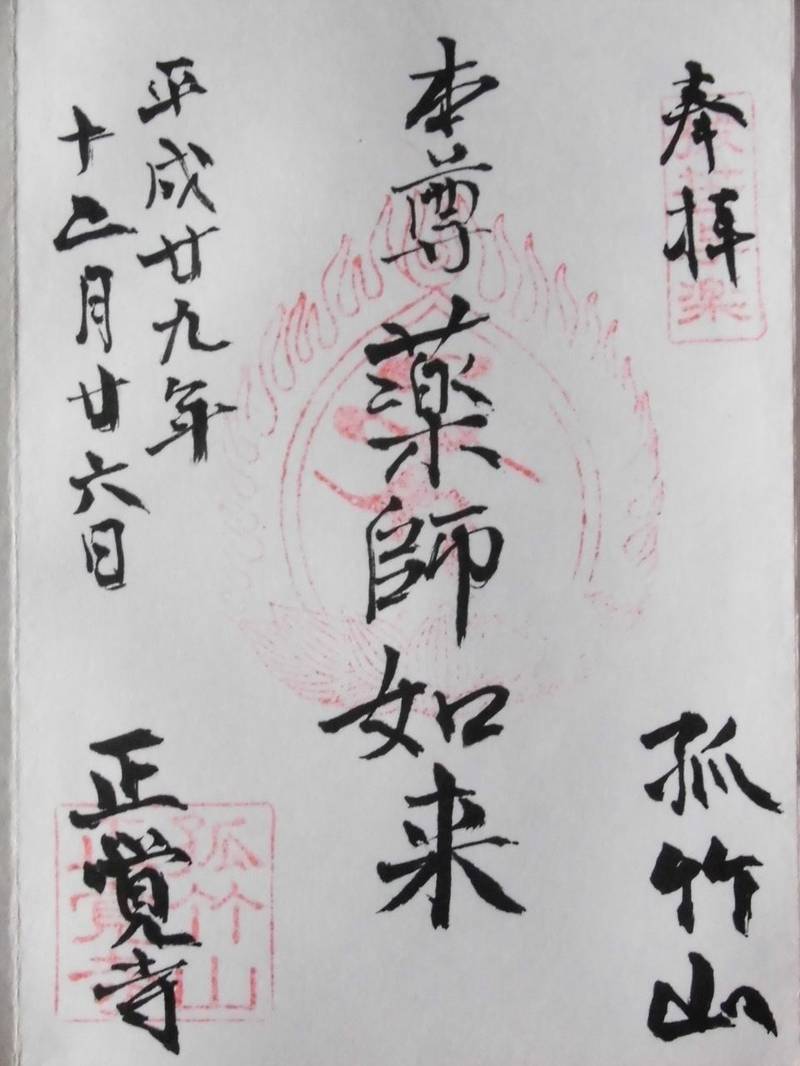 奉拝
孤竹山
本尊薬師如来
平成廿九年
十二月廿六日
正覚寺
孤竹山
正覚寺